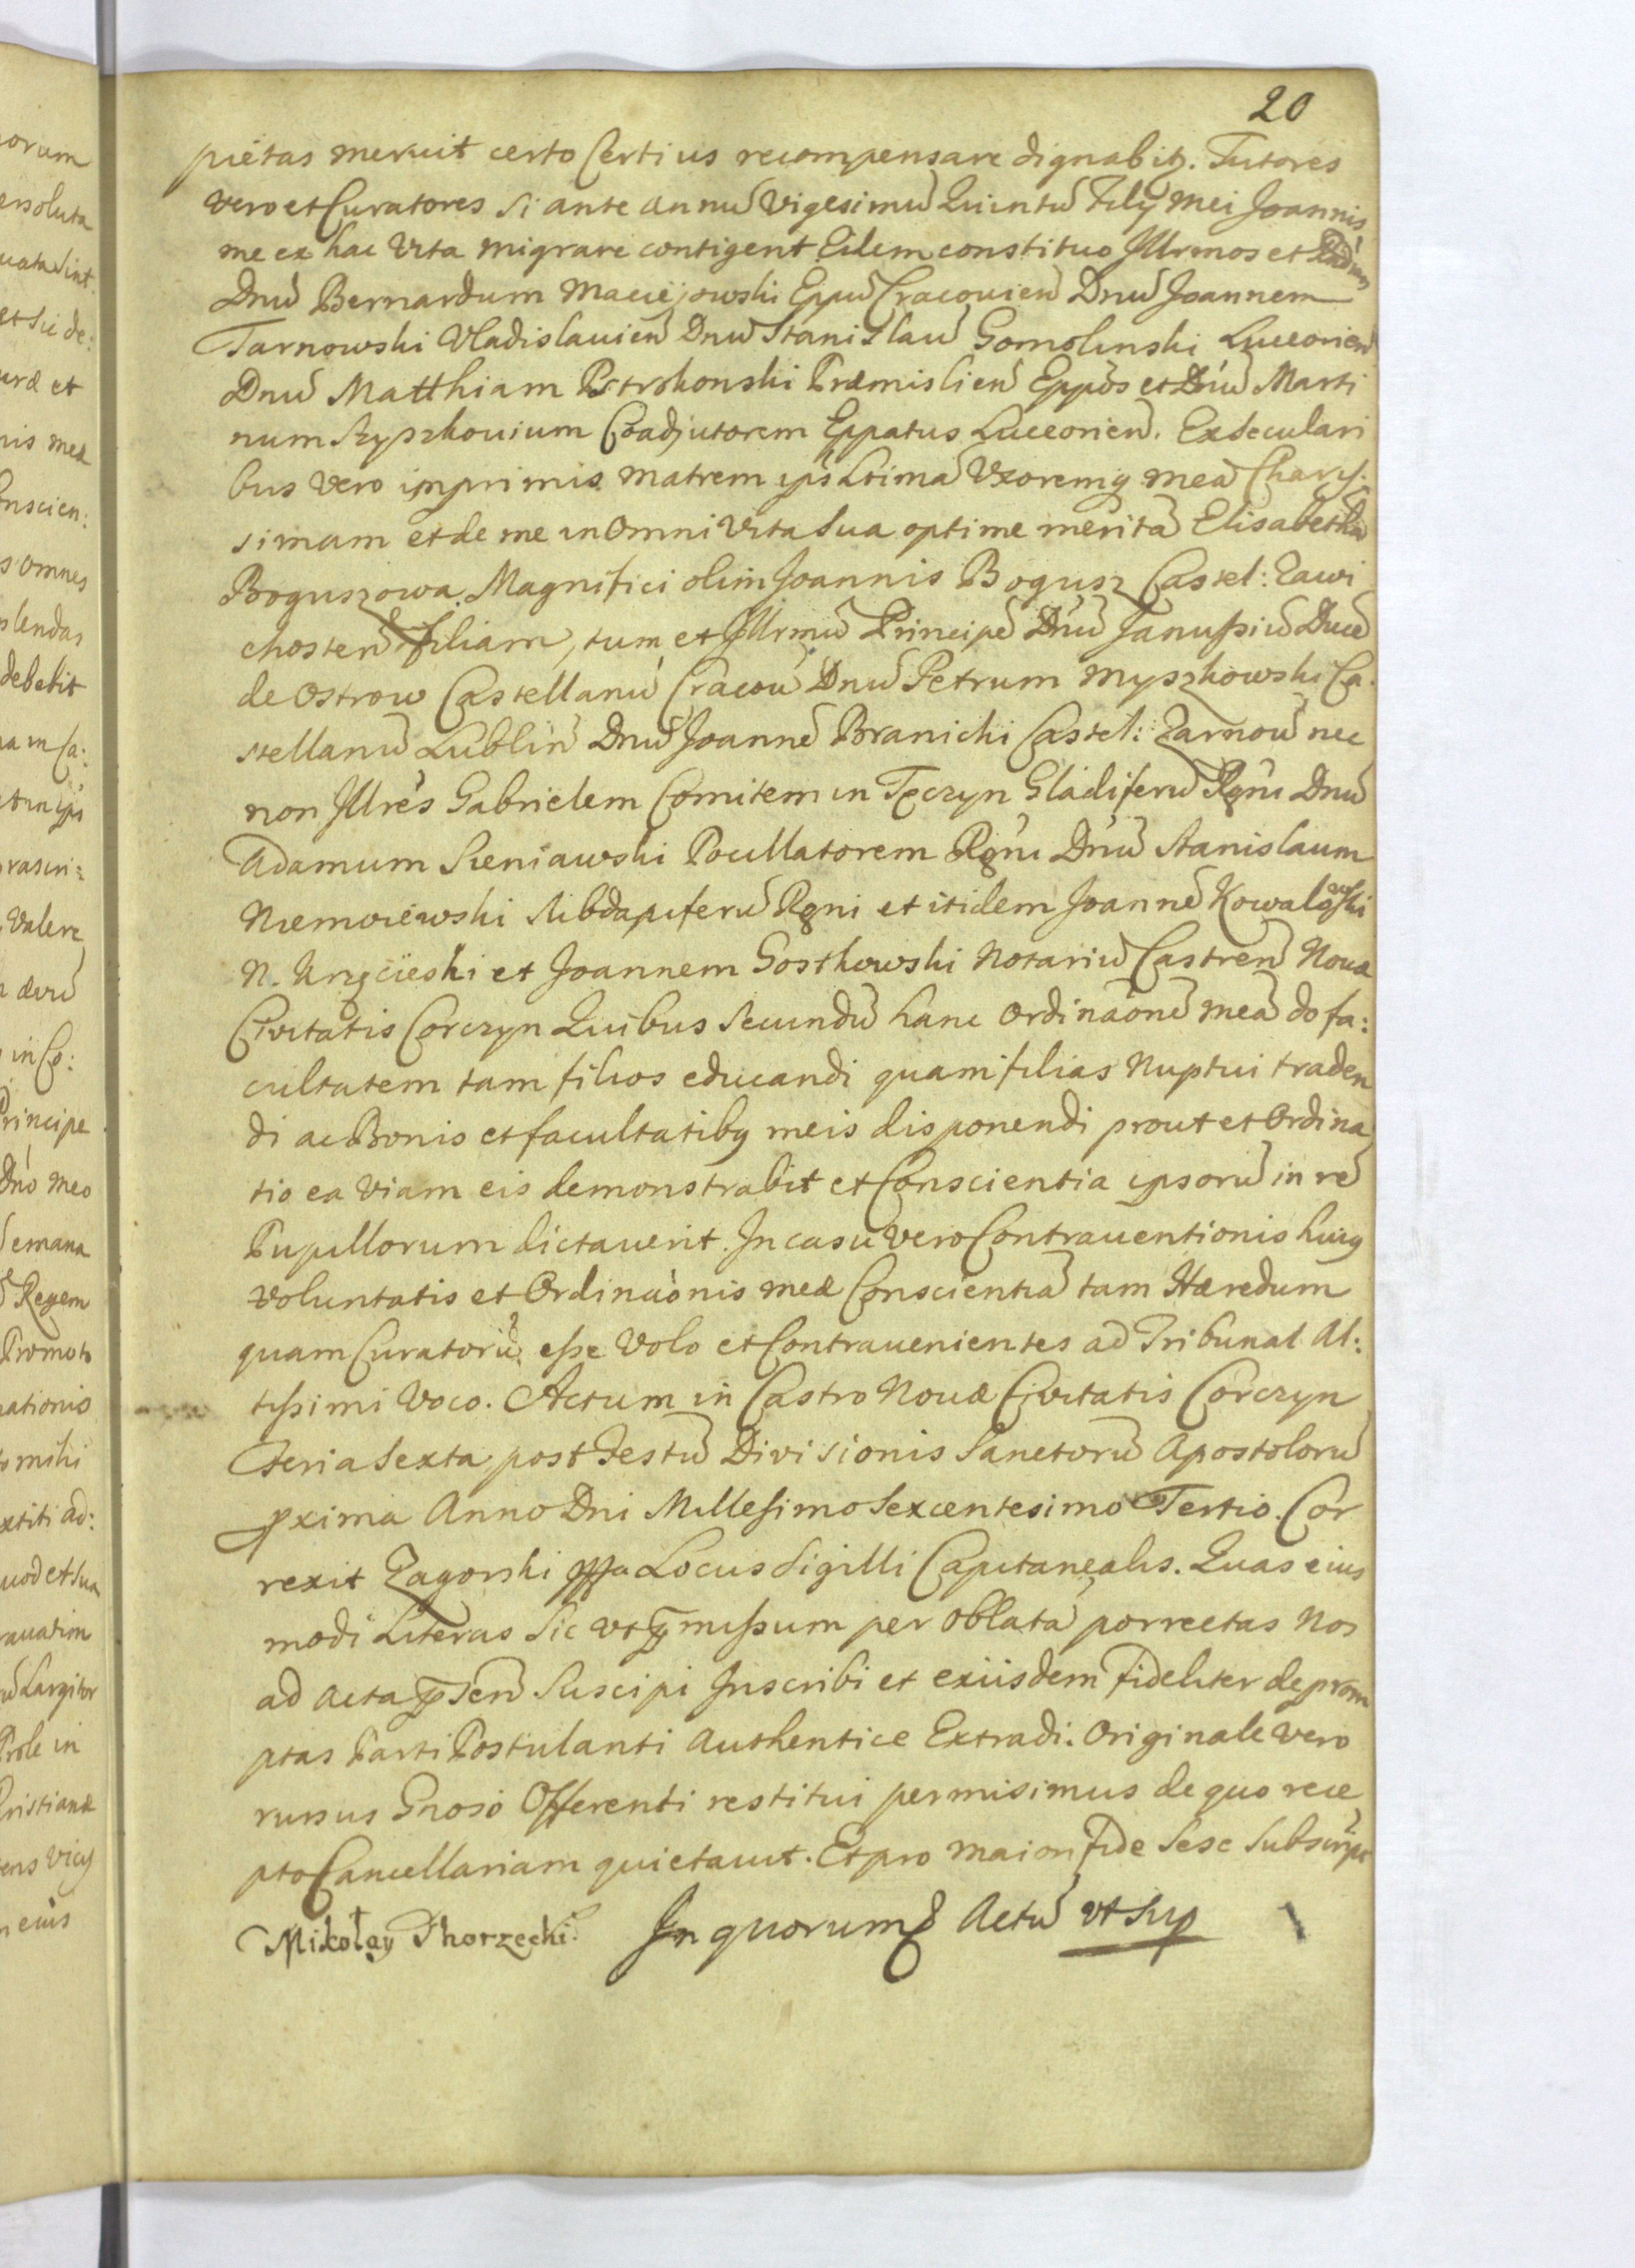 20
pietas meruit certo Certius recompensare dignabitz. Tutores
vero et Curatores si ante annũ Vigesimũ Quintũ Filÿ mei Joannis
me ex hac Vita migrare contigerit Eidem constituo Jllrmos et Rndmos
Dnũ Bernardum Macieiowski Eppũ Cracouien̄ Dnũ Joannem
Tarnowski Vladislauien̄ Dnũ Stanislaũ Gomolinski Luceorien̄
Dnũ Matthiam Pstrokonski Præmislien̄ Eppos et Dnũ Marti
num Szyszkouium Coadjutorem Eppatus Luceorien̄. Ex secular i
bus vero inprimis matrem ips Uxoremq mea Charis:
simam et de me in Omni Vita sua optime meritã Elisabethã
Boguszowa Magnifici olim Joannis Bogusz Castel: Zawi
chosten̄ filiam, tum et Jllrmũ Principẽ Dnũ Janussiũ Ducẽ
de Ostrow Castellanũ Cracou̅ Dnũ Petrum Myszkowski Ca:
stellanũ Lublin̄ Dnũ Joannẽ Branicki Castel: Zarnou̅ nec
non Jllres Gabrielem Comitem in Tęczyn Gladiferũ Rgni Dnũ
Adamum Sieniawski Pocillatorem Rgni Dnũ Stanislaum
Niemoiewski Subdapiferũ Rgni et itidem Joannẽ Kowalowski
N. et Joannem Gostkowski Notariũ Castren̄ Nouæ
Ciuitatis Corczyn Quibus secundũ hanc Ordinaõnẽ meã do fa:
cultatem tam filios educandi quam filias Nuptui traden
di ac Bonis et facultatibq meis disponendi prout et Ordina
tio ea Viam eis demonstrabit et Conscientia ipsorũ in rẽ
Pupillorum dictauerit. In casu vero Contrauentionis huiq
voluntatis et Ordinaõnis meæ Conscientiã tam Hæredum
quam Curatorũ esse Volo et Contrauenientes ad Tribunal Al:
tissimi Voco. Actum in Castro Nouæ Ciuitatis Corczyn
Feria Sexta post Festũ Divisionis Sanctorũ Apostolorũ
pxima Anno Dni Millesimo Sexcentesimo Tertio. Cor
rexit Zagorski Locus Sigilli Capitanealis. Quas eius
modi Literas Sic vt pmissum per Oblatã porrectas Nos
ad Acta psen̄ Suscipi Jnscribi et exiisdem fideliter deprom
ptas Parti Postulanti Authentice Extradi. Originale vero
rursus Gnoso Offerenti restitui permisimus de quo rece
pto Cancellariam quietauit. Et pro maiori fide sese Subscript
Mikołay Skorzecki. Jn quorum Actũ vt Sup